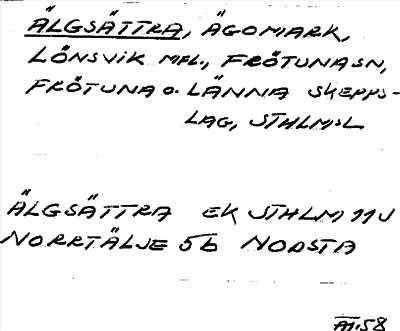 ÄLGSÄTTRA, ÄGOMARK,
LÖNSVIK MFL., FRÖTUNA SN,
FRÖTUNA O. LÄNNA SKEPPS-
LAG, STHLM:L
ÄLGSÄTTRA EK STHLM 11J
NORRTÄLJE 5b NODSTA